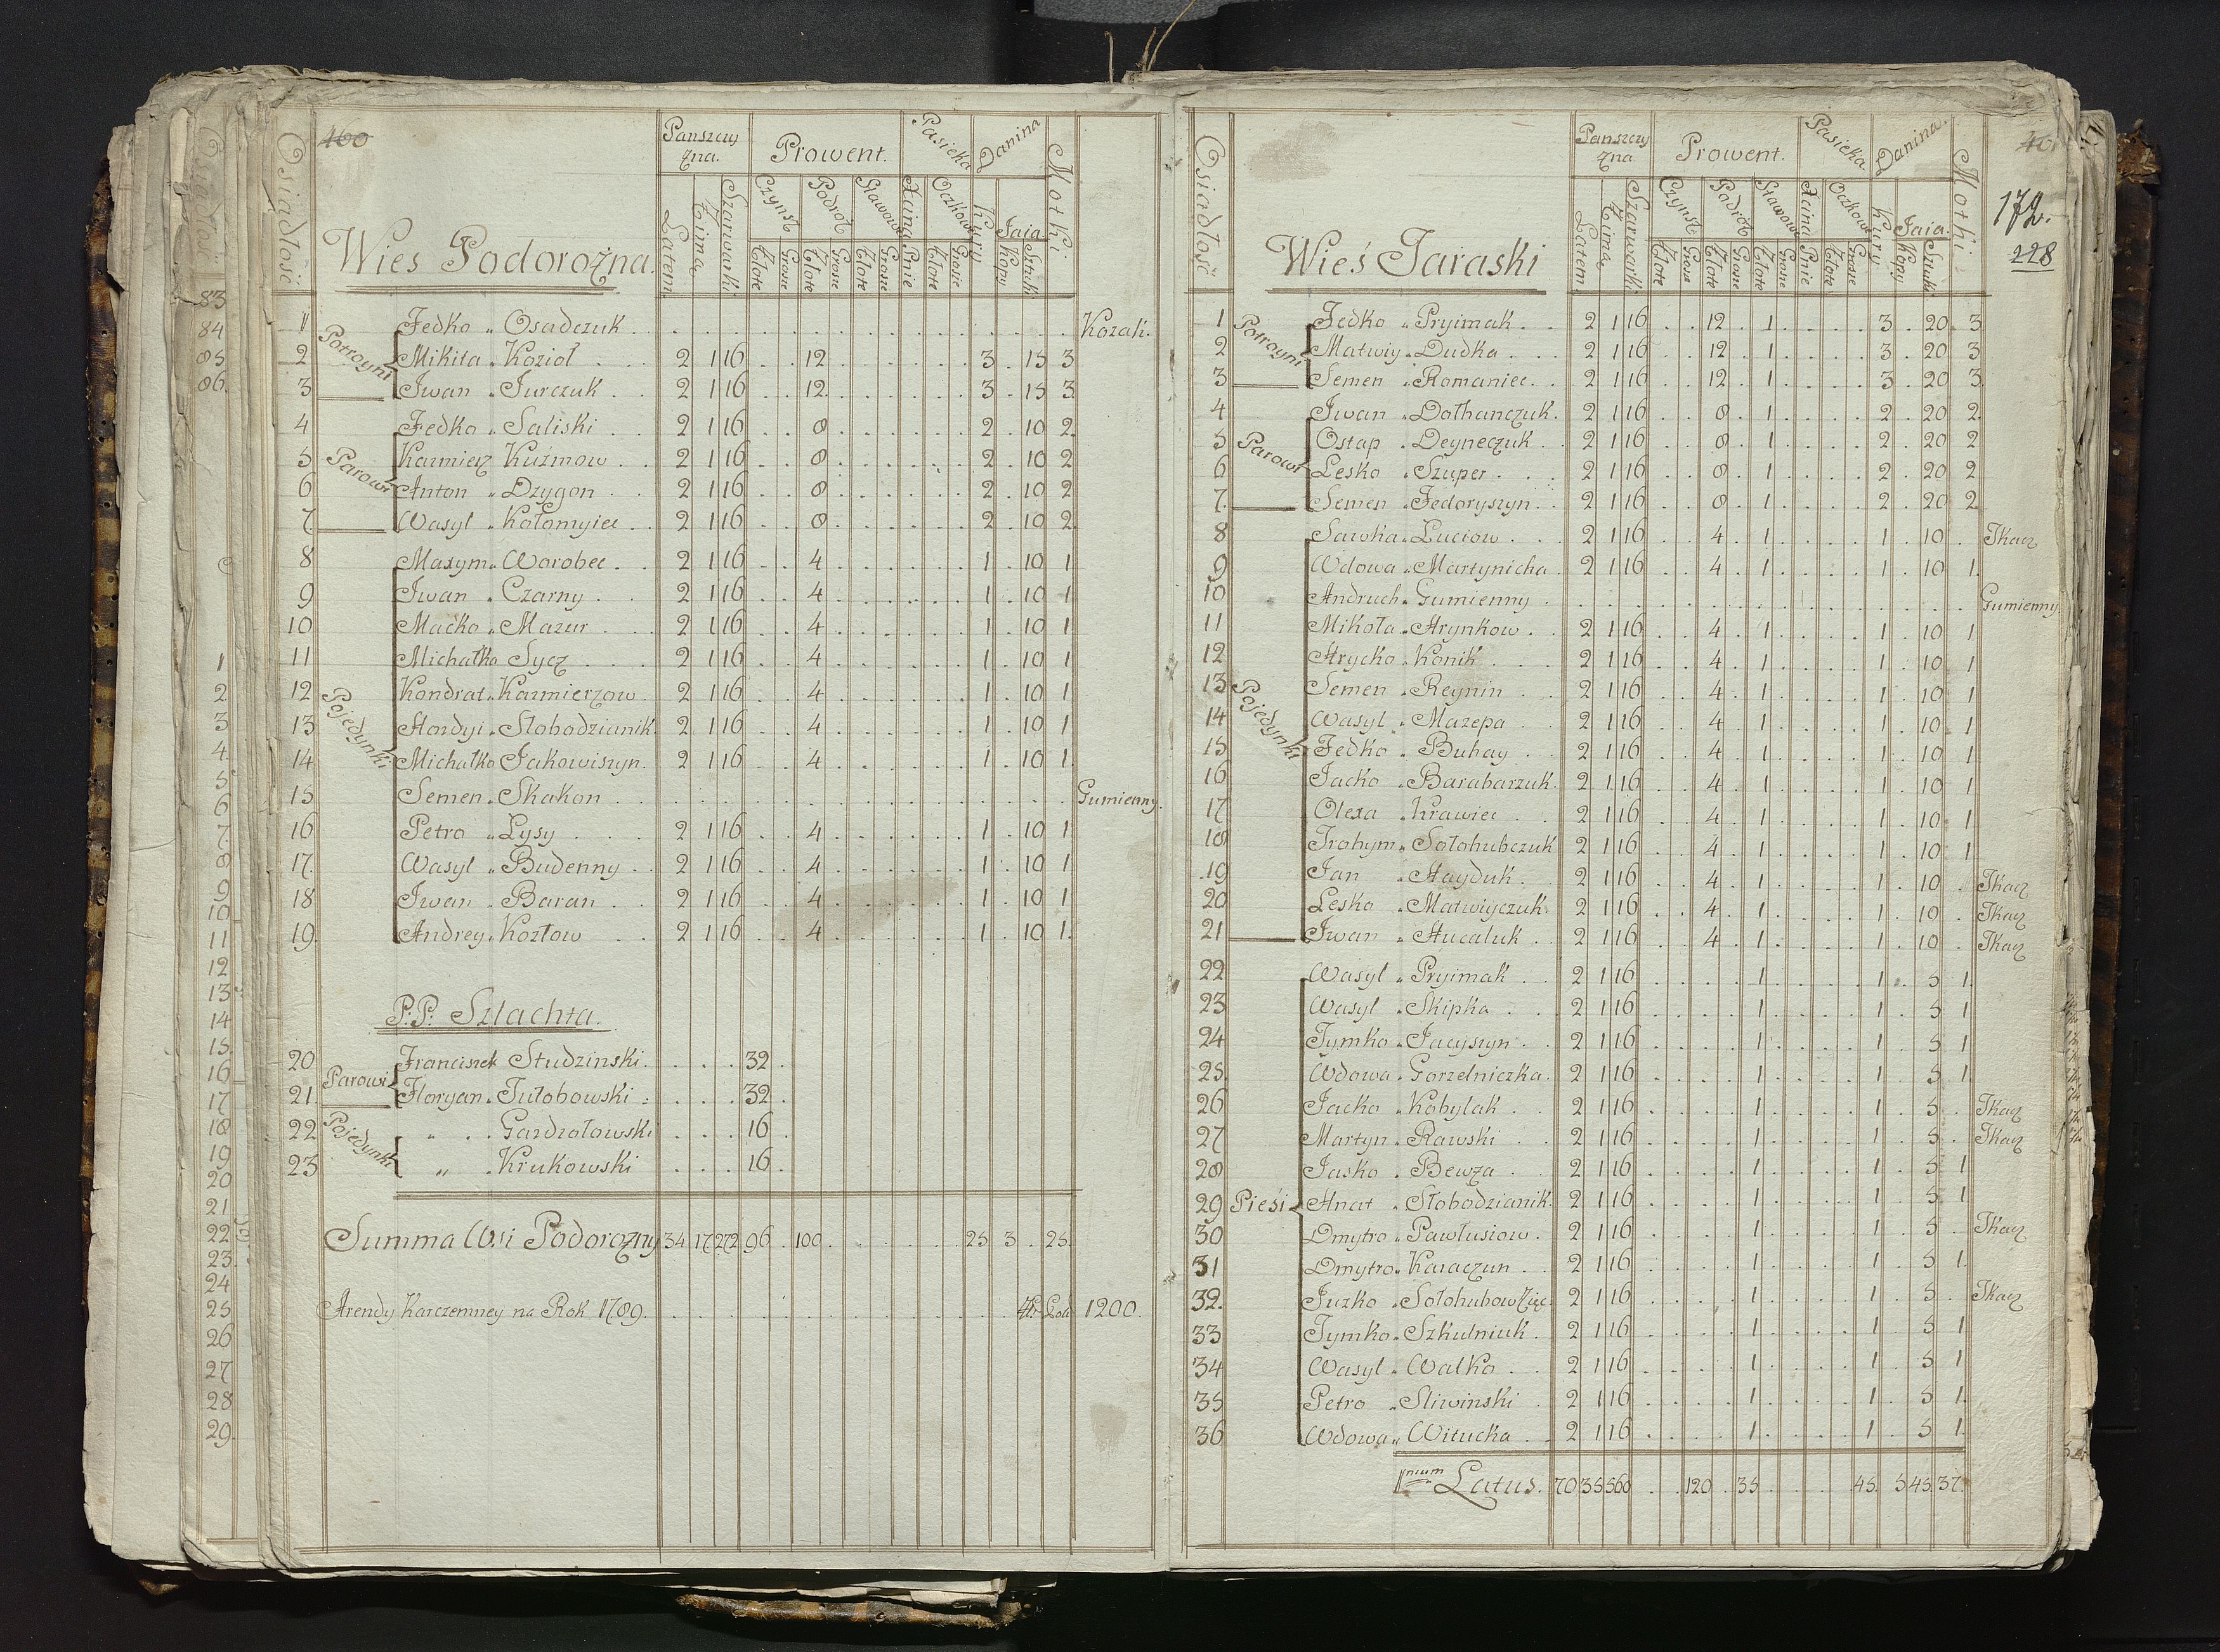 460
Osiadłość
Wies Podorożna.
Panszczyzna. Prowent. Pasieka Danina Motki
Latem Zima Szarwarki Czynsz Podróż Stawow Zimna Oczkowa Kury Jaia
Złote Grosze Złote Grosze Złote Grosze Pnie Złote Grosze Kopy Sztuki
Potroyni
1 Fedko „ Osadczuk . Kozak.
2 Mikita „ Kozioł . 2 1 16 . . 12 . 3 . 15 3
3 Jwan „ Jurczuk . 2 1 16 . . 12 . 3 . 15 3
Parowi
4 Fedko „ Saliski . 2 1 16 . . 8 . 2 . 10 2
5 Kazmierz Kuźmow . 2 1 16 . . 8 . 2 . 10 2
6 Anton „ Dzygon . 2 1 16 . . 8 . 2 . 10 2
7 Wasyl „ Kołomyiec . 2 1 16 . . 8 . 2 . 10 2
Pojedynki
8 Maxym „ Worobec . 2 1 16 . . 4 . 1 . 10 1
9 Jwan „ Czarny . 2 1 16 . . 4 . 1 . 10 1
10 Maćko „ Mazur . 2 1 16 . . 4 . 1 . 10 1
11 Michałko Sycz . 2 1 16 . . 4 . 1 . 10 1
12 Kondrat „ Kazmierzow . 2 1 16 . . 4 . 1 . 10 1
13 Hordyi „ Słobodzianik . 2 1 16 . . 4 . 1 . 10 1
14 Michałko Jakowiszyn . 2 1 16 . . 4 . 1 . 10 1
15 Semen „ Skakon . Gumienny.
16 Petro „ Łysy . 2 1 16 . . 4 . 1 . 10 1
17 Wasyl „ Budenny . 2 1 16 . . 4 . 1 . 10 1
18 Jwan „ Baran . 2 1 16 . . 4 . 1 . 10 1
19 Andrey „ Kozłow . 2 1 16 . . 4 . 1 . 10 1
P:P: Szlachta.
Parowi
20 Franciszek Studzinski . 32 .
21 Floryan „ Tułobowski . 32 .
Pojedynki
22 „ . Gardzołowski . 16 .
23 „ . Krukowski . 16 .
Summa Wsi Podorożny 34 17 272 96 . 100 . 25 3 . 25.
Arendy Karczemney na Rok 1789. 1200.
Osiadłość
Wieś Taraski
Panszczyzna Prowent. Pasieka Danina. Motki
172.
228
Latem Zima Szarwarki Czynsz Podróż Stawow Zimna Oczkowa Kury Jaia
Złote Grosze Złote Grosze Złote Grosze Pnie Złote Grosze Kopy Sztuki
Potroyni
1 Fedko „ Pryimak . 2 1 16 . . 12 . 1 . 3 . 20 3
2 Matwiy „ Dudka . 2 1 16 . . 12 . 1 . 3 . 20 3
3 Semen „ Romaniec . 2 1 16 . . 12 . 1 . 3 . 20 3
Parowi
4 Jwan „ Dołhanczuk . 2 1 16 . . 8 . 1 . 2 . 20 2
5 Ostap „ Deyneczuk . 2 1 16 . . 8 . 1 . 2 . 20 2
6 Lesko „ Szuper . 2 1 16 . . 8 . 1 . 2 . 20 2
7 Semen „ Fedoryszyn . 2 1 16 . . 8 . 1 . 2 . 20 2
Pojedynki
8 Sawka „ Luciow . 2 1 16 . . 4 . 1 . 1 . 10 . Tkacz
9 Wdowa „ Martynicha . 2 1 16 . . 4 . 1 . 1 . 10 1
10 Andruch „ Gumienny . Gumienny
11 Mikoła „ Hrynkow . 2 1 16 . . 4 . 1 . 1 . 10 1
12 Hrycko „ Konik . 2 1 16 . . 4 . 1 . 1 . 10 1
13 Semen „ Reynin . 2 1 16 . . 4 . 1 . 1 . 10 1
14 Wasyl „ Mazepa . 2 1 16 . . 4 . 1 . 1 . 10 1
15 Fedko „ Buhay . 2 1 16 . . 4 . 1 . 1 . 10 1
16 Jacko „ Barabarzuk . 2 1 16 . . 4 . 1 . 1 . 10 1
17 Olexa „ Krawiec . 2 1 16 . . 4 . 1 . 1 . 10 1
18 Trohym „ Sołohubczuk 2 1 16 . . 4 . 1 . 1 . 10 1
19 Jan „ Hayduk . 2 1 16 . . 4 . 1 . 1 . 10 . Tkacz
20 Lesko „ Matwiyczuk 2 1 16 . . 4 . 1 . 1 . 10 . Tkacz
21 Jwan „ Hucaluk . 2 1 16 . . 4 . 1 . 1 . 10 . Tkacz
Pieśi
22 Wasyl „ Pryimak . 2 1 16 . 1 . 1 . 5 1
23 Wasyl „ Skipka . 2 1 16 . 1 . 1 . 5 1
24 Tymko „ Jacyszyn . 2 1 16 . 1 . 1 . 5 1
25 Wdowa „ Gorzelniczka . 2 1 16 . 1 . 1 . 5 1
26 Jacko „ Kobylak . 2 1 16 . 1 . 1 . 5 . Tkacz
27 Martyn „ Rawski . 2 1 16 . 1 . 1 . 5 . Tkacz
28 Jasko „ Bewza . 2 1 16 . 1 . 1 . 5 1
29 Hnat „ Słobodzianik . 2 1 16 . 1 . 1 . 5 1
30 Dmytro „ Pawlusiow . 2 1 16 . 1 . 1 . 5 . Tkacz
31 Dmytro „ Karaczun . 2 1 16 . 1 . 1 . 5 1
32. Juzko „ Sołohubow Zięć 2 1 16 . 1 . 1 . 5 . Tkacz
33 Tymko „ Szkulniuk . 2 1 16 . 1 . 1 . 5 1
34 Wasyl „ Walko . 2 1 16 . 1 . 1 . 5 1
35 Petro „ Sliwinski . 2 1 16 . 1 . 1 . 5 1
36 Wdowa „ Witucka . 2 1 16 . 1 . 1 . 5 1
1mum Latus. 70 35 560 . . 120 . 35 . 45. 5 45 37.